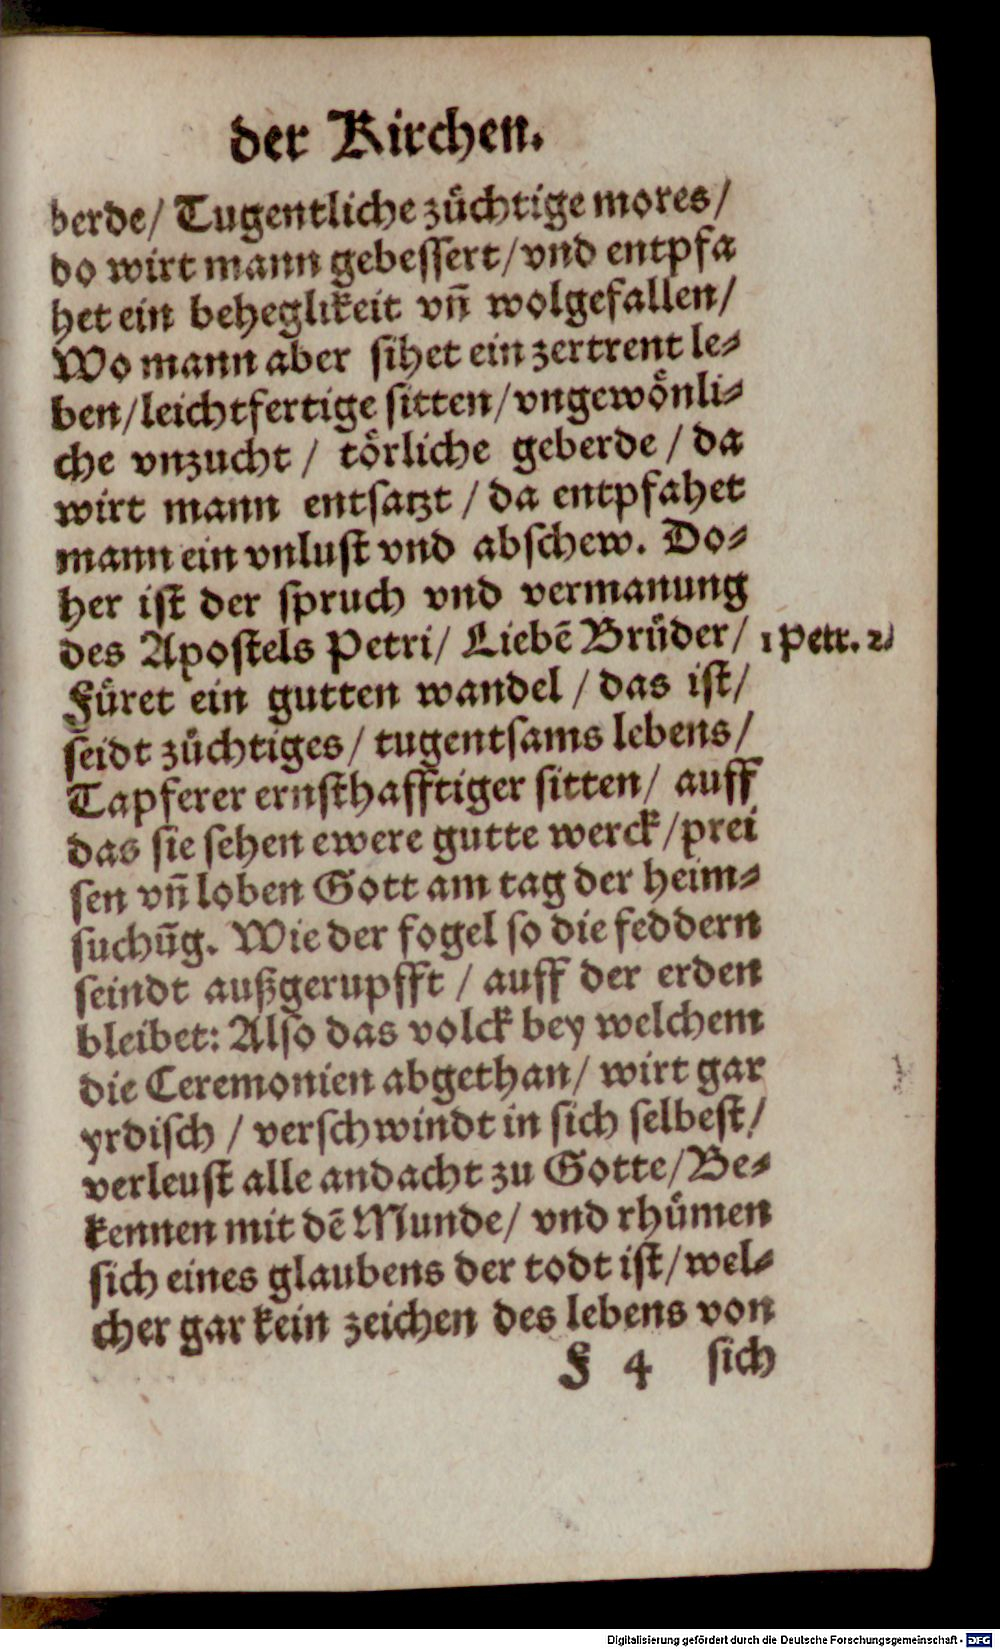 der Kirchen.
berde/ Tugentliche zuͤchtige mores/
do wirt mann gebessert/vnd entpfa
het ein beheglikeit vñ wolgefallen/
Wo mann aber sihet ein zertrent le⸗
ben/leichtfertige sitten/vngewoͤnli⸗
che vnzucht / toͤrliche geberde / da
wirt mann entsatzt / da entpfahet
mann ein vnlust vnd abschew. Do⸗
her ist der spruch vnd vermanung
des Apostels Petri/ Liebē Bruͤder/ 1 Petr. 2.
Fuͤret ein gutten wandel / das ist/
seidt zuͤchtiges/ tugentsams lebens/
Tapferer ernsthafftiger sitten/ auff
das sie sehen ewere gutte werck/prei
sen vñ loben Gott am tag der heim⸗
suchūg. Wie der fogel so die feddern
seindt außgerupfft / auff der erden
bleibet: Also das volck bey welchem
die Ceremonien abgethan/ wirt gar
yrdisch / verschwindt in sich selbest/
verleust alle andacht zu Gotte/Be⸗
kennen mit dē Munde/ vnd rhuͤmen
sich eines glaubens der todt ist/wel⸗
cher gar kein zeichen des lebens von
F 4 sich
Digitalisierung gefördert durch die Deutsche Forschungsgemeinschaft - DFG